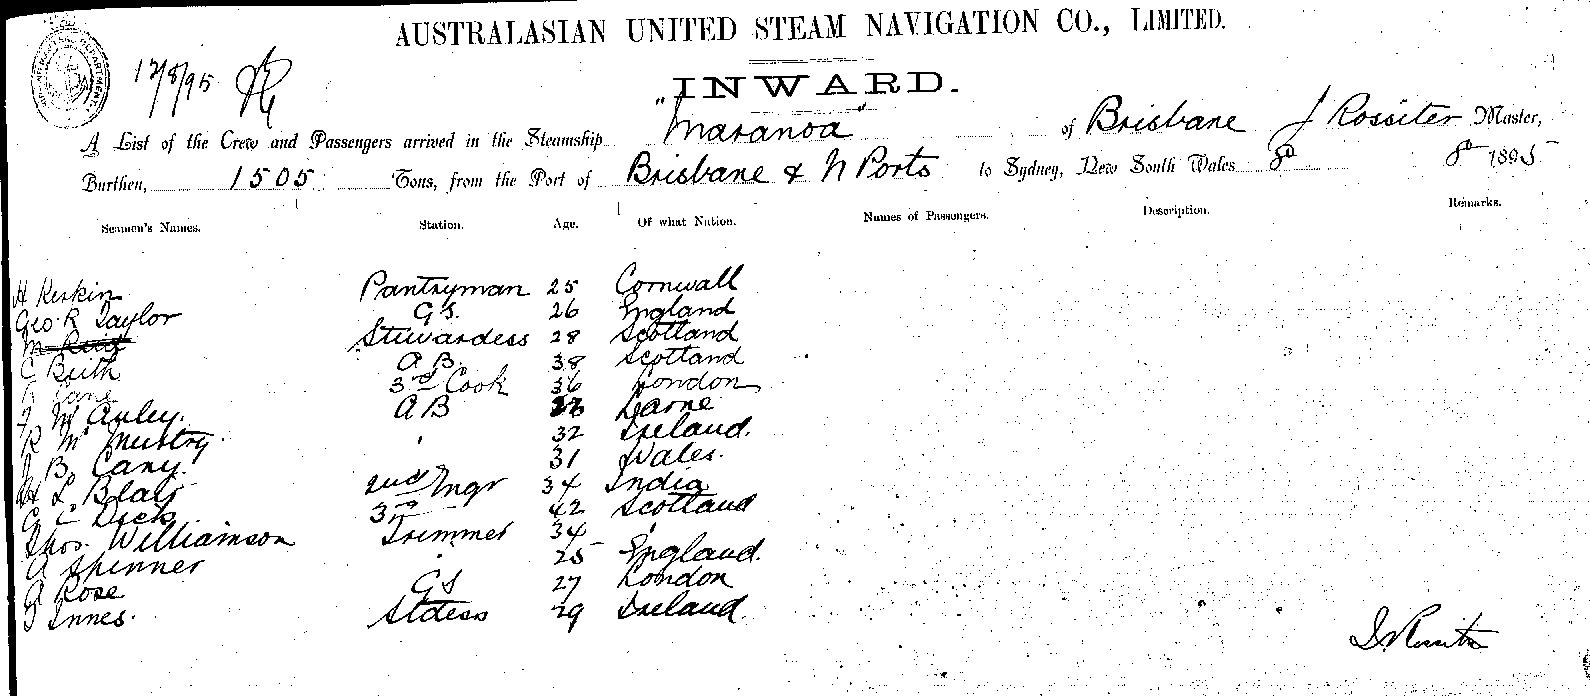 AUSTRALASIAN UNITED STEAM NAVIGATION CO., LIMITED.
12/8/95
INWARD.
A List of the Crew and Passengers arrived in the Steamship "Maranoa" of Brisbane J Rossiter Master,
Burthen, 1505 Tons, from the Port of Brisbane & N Ports to Sydney, New South Wales 1895
Seamen's Names. Station. Age. Of what Nation. Names of Passengers. Description. Remarks.
H Kerkin Pantryman 25 Cornwall
Geo. R Taylor G.S. 26 England
M Reid Stewardess 28 Scotland
C Beith A B. 38 Scotland
Lane 3rd Cook 36 London
J McAuley. A B Larne
R Mc 32 Ireland.
J B. Cany. 31 Wales.
L Blair 2nd Engr 34 India
G C Dick 3rd 42 Scotland
Thos. Williamson Trimmer 34 "
A Skinner " 25 England.
A Rose GS 27 London
J Innes. Stdess 29 Ireland.
J. Rossiter